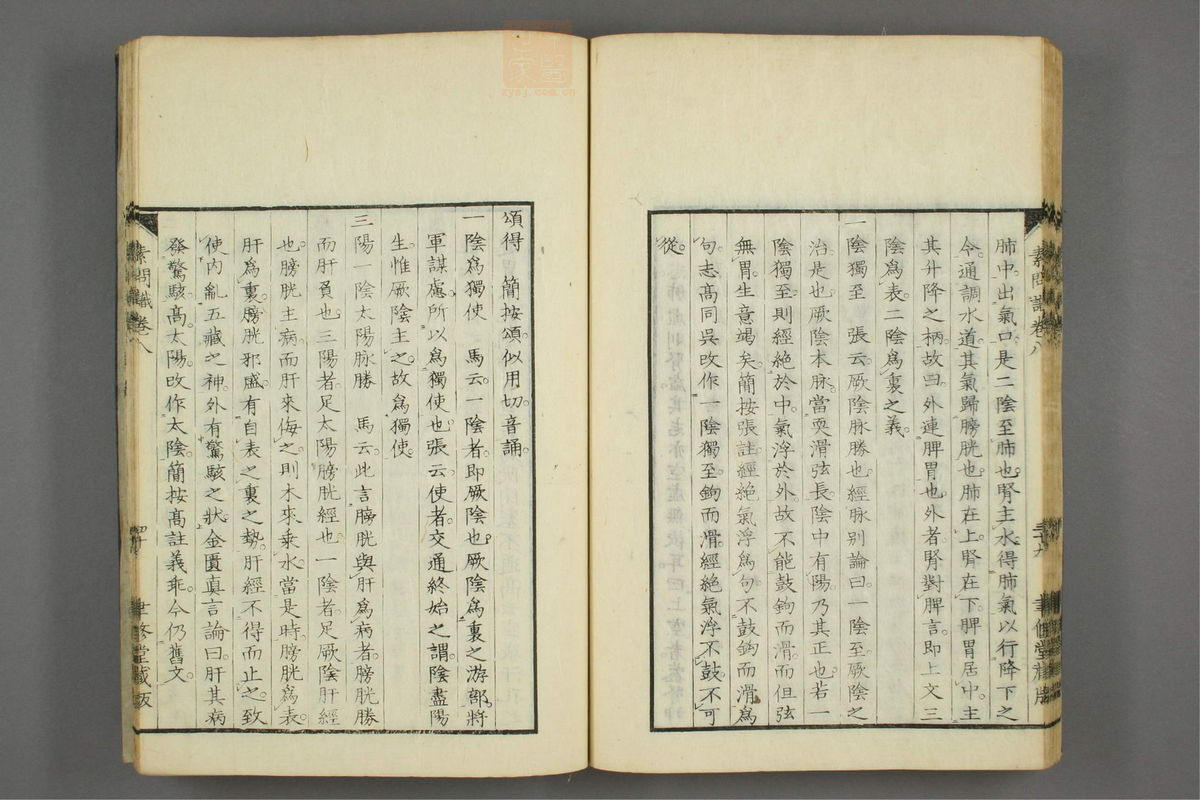 肺中。出氣口。是二陰至肺也。腎主水。得肺氣以行降下之
令。通調水道。其氣歸膀胱也。肺在上。腎在下。脾胃居中。主
其升降之柄。故曰。外連脾胃也。外者。腎對脾言。即上文三
陰爲表。二陰爲裏之義。
一陰獨至　張云。厥陰脉勝也。經脉别論曰。一陰至。厥陰之
治是也。厥陰本脉。當耎滑弦長。陰中有陽。乃其正也。若一
陰獨至。則經絶於中。氣浮於外。故不能鼓鉤而滑。而但弦
無胃。生意竭矣。簡按張註。經絶氣浮爲句。不鼓鉤而滑爲
句。志高同。吳改作一陰獨至。鉤而滑。經絶氣浮。不鼓。不可
從。
素問識卷八
三十九
聿修堂藏版
頌得　簡按頌。似用切。音誦。
一陰爲獨使　馬云。一陰者。即厥陰也。厥陰爲裏之游部。將
軍謀慮。所以爲獨使也。張云。使者。交通終始之謂。陰盡陽
生。惟厥陰主之。故爲獨使。
三陽一陰太陽脉勝　馬云。此言膀胱與肝爲病者。膀胱勝
而肝負也。三陽者。足太陽膀胱經也。一陰者。足厥陰肝經
也。膀胱主病。而肝來侮之。則木來乘水。當是時。膀胱爲表。
肝爲裏。膀胱邪盛。有自表之裏之勢。肝經不得而止之。致
使內亂五藏之神。外有驚駭之狀。金匱眞言論曰。肝其病
發驚駭。高。太陽。改作太陰。簡按高註義乖。今仍舊文。
素問識卷八
四十
聿修堂藏版
zysj.com.cn